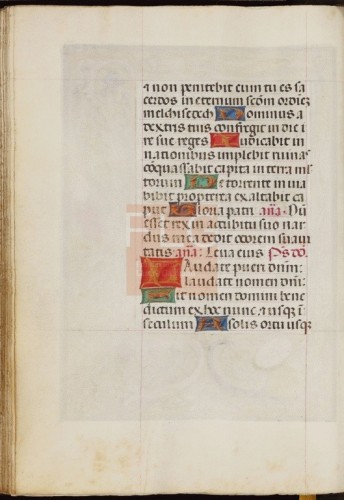 ⁊ non penitebit eum tu es sa
cerdos in eternum scðm ordinē
melchisedech Dominus a
dextris tuis confregit in die i
re sue reges Iudicabit in
nationibus implebit ruinas
cōquassabit capita in terra ml
torum De torrente in uia
bibit propterea exaltabit ca
put Gloria patri añā. Dū
esset rex in acubitu suo nar
dus mea dedit odorem suaui
tatis añā: Leua eius Psð.
Laudate pueri dnm:
laudate nomen dnī:
Sit nomen domini bene
dictum ex hoc nunc ⁊ usqȝ ī
seculum A solis ortu usqȝ